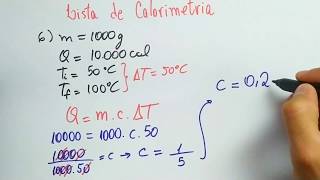 Lista de Calorimetria
6) m = 1000g
Q = 10.000 cal
Ti = 50°C
Tf = 100°C } ΔT = 50°C
Q = m.c.ΔT
10000 = 1000.c.50
10000/1000.50 = c → c = 1/5
c = 0,2